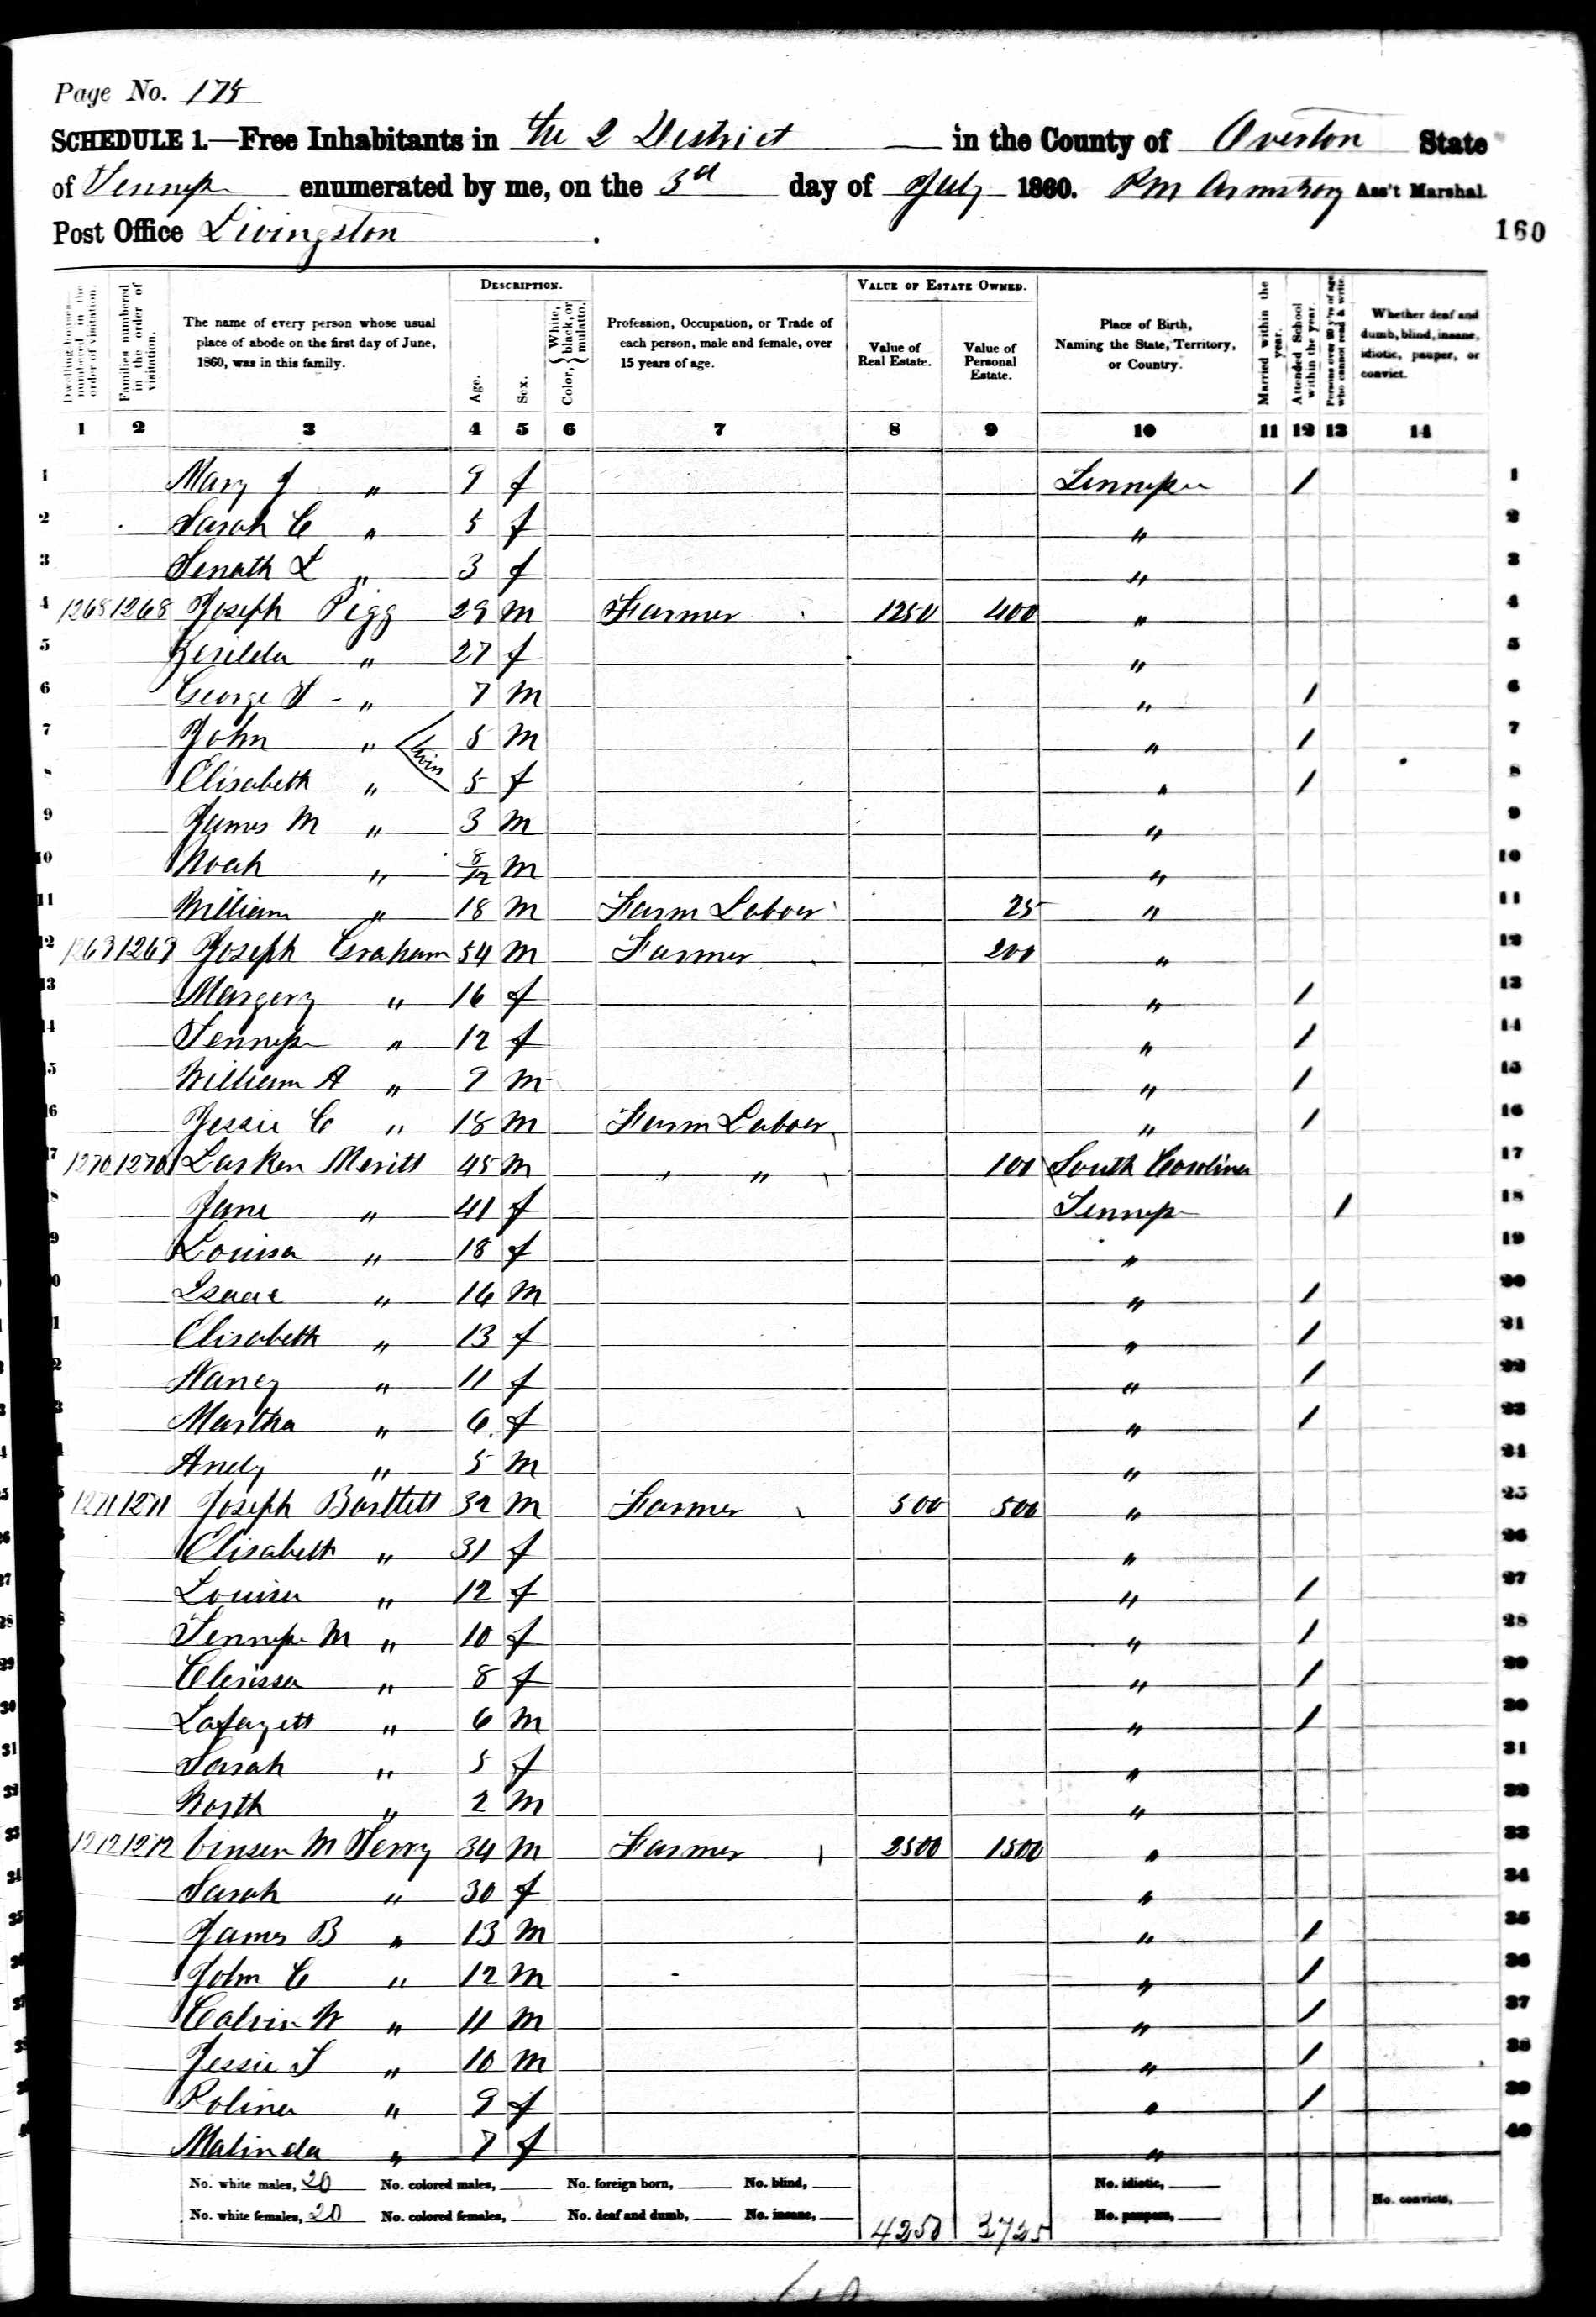 Page No. 175
SCHEDULE 1.—Free Inhabitants in the 2 District in the County of Overton State
of Tennessee enumerated by me, on the 3d day of July 1860. Ass't Marshal.
Post Office Livingston
160
Dwelling houses—numbered in the order of visitation.
Families numbered in the order of visitation.
The name of every person whose usual place of abode on the first day of June, 1860, was in this family.
DESCRIPTION.
Age.
Sex.
Color, { White, black, or mulatto. }
Profession, Occupation, or Trade of each person, male and female, over 15 years of age.
VALUE OF ESTATE OWNED.
Value of Real Estate.
Value of Personal Estate.
Place of Birth, Naming the State, Territory, or Country.
Married within the year.
Attended School within the year.
Persons over 20 y'rs of age who cannot read & write.
Whether deaf and dumb, blind, insane, idiotic, pauper, or convict.
1 2 3 4 5 6 7 8 9 10 11 12 13 14
1 Mary J " 9 f Tennessee / 1
2 Sarah C " 5 f " 2
3 Senath L " 3 f " 3
4 1268 1268 Joseph Pigg 29 m Farmer 1250 400 " 4
5 Zerilda " 27 f " 5
6 George T " 7 m " / 6
7 John " twin 5 m " / 7
8 Elisabeth " 5 f " / 8
9 James M " 3 m " 9
10 Noah " 8/12 m " 10
11 William " 18 m Farm Labour 25 " 11
12 1269 1269 Joseph Graham 54 m Farmer 200 " 12
13 Margery " 16 f " / 13
14 Tennessee " 12 f " / 14
15 William A " 9 m " / 15
16 Jessie C " 18 m Farm Labour " / 16
17 1270 1270 Larken Meritt 45 m " " 100 South Carolina 17
18 Jane " 41 f Tennessee / 18
19 Louisa " 18 f " 19
20 Isaac " 16 m " / 20
21 Elisabeth " 13 f " / 21
22 Nancy " 11 f " / 22
23 Martha " 6 f " / 23
24 Andy " 5 m " 24
25 1271 1271 Joseph Bartlett 32 m Farmer 500 500 " 25
26 Elisabeth " 31 f " 26
27 Louisa " 12 f " / 27
28 Tennessee M " 10 f " / 28
29 Clerissa " 8 f " / 29
30 Lafayett " 6 m " / 30
31 Sarah " 5 f " 31
32 North " 2 m " 32
33 1272 1272 Vinsen M Terry 34 m Farmer 2500 1500 " 33
34 Sarah " 30 f " 34
35 James B " 13 m " / 35
36 John C " 12 m " / 36
37 Calvin W " 11 m " / 37
38 Jessie T " 10 m " / 38
39 Poliner " 9 f " / 39
40 Malinda " 7 f " 40
No. white males, 20 No. colored males, No. foreign born, No. blind, No. idiotic,
No. white females, 20 No. colored females, No. deaf and dumb, No. insane, 4250 No. paupers, No. convicts,